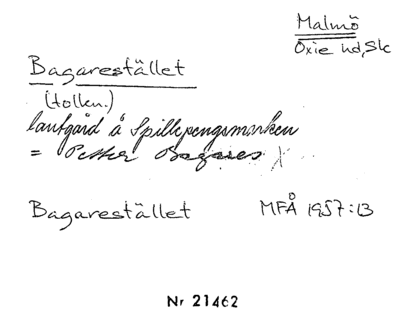 Malmö
Oxie hd, Sk
Bagarestället
(tolkn.)
lantgård å Spillepengsmarken
= Petter Bagares
Bagarestället MFÅ 1957:13
Nr 21462